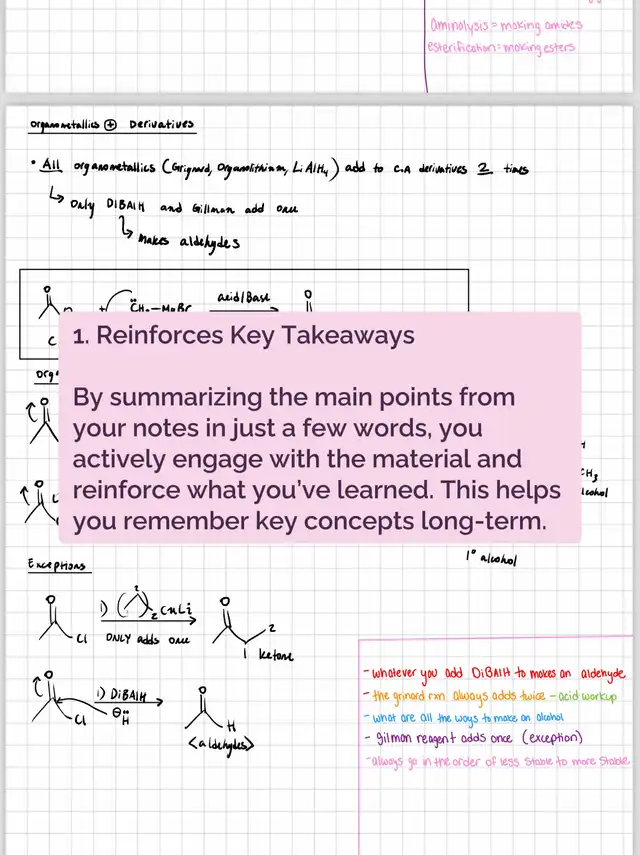 aminolysis = making amides
esterification = making esters
Organometallics ⊕ Derivatives
• All organometallics (Grignard, Organolithium, LiAlH4) add to C.A derivatives 2 times
↳ Only DIBAlH and Gillman add once
↳ Makes aldehydes
O O
+ C̈H3–MgBr acid/Base
C
1. Reinforces Key Takeaways
By summarizing the main points from
your notes in just a few words, you
actively engage with the material and
reinforce what you've learned. This helps
you remember key concepts long-term.
O
H
O
CH3
1° alcohol
Exceptions
O 1) ( )2 CuLi O 2
Cl ONLY adds once 1 ketone
O 1) DiBAlH O
Cl ⊖H H
<aldehydes>
- whatever you add DiBAlH to makes an aldehyde
- the grinard rxn always adds twice - acid workup
- what are all the ways to make an alcohol
- gilman reagent adds once (exception)
- always go in the order of less stable to more stable